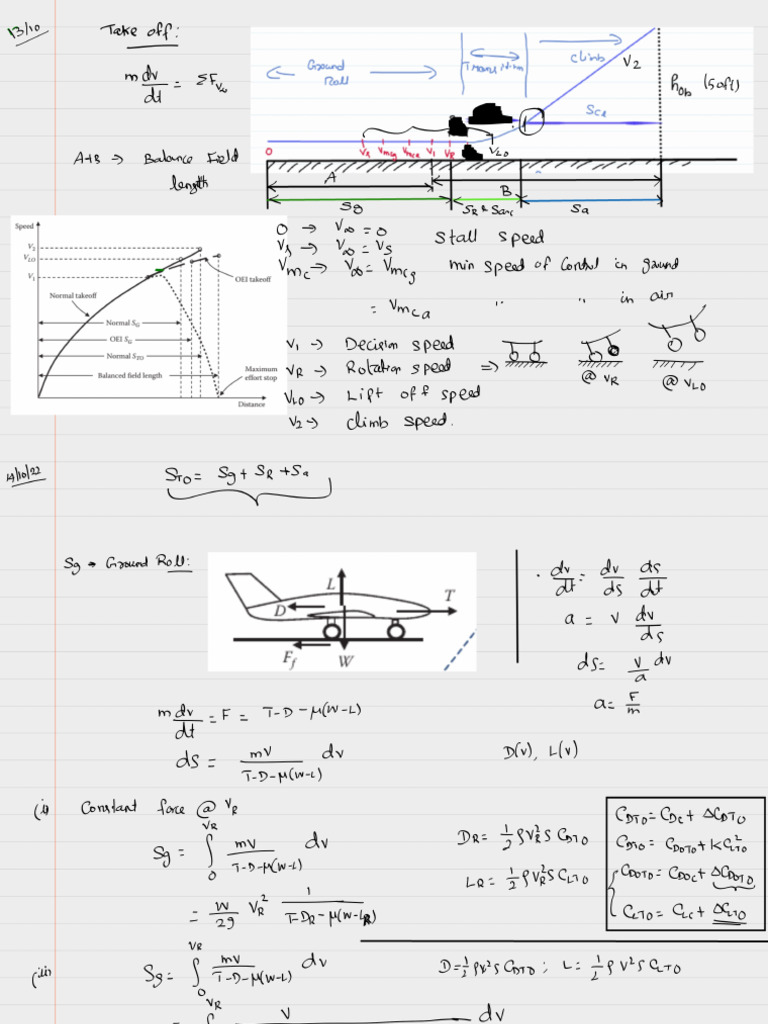 13/10
Take off:
m dv/dt = ΣF_V∞
A+B → Balance Field length
← Ground Roll →
Transition
climb
V2
h_ob (50ft)
0 Vs Vmcg Vmca V1 VR VLO
A
B
Sg
SR & Sarc
Sa
Speed
V2
VLO
V1
OEI takeoff
Normal takeoff
Normal SG
OEI SG
Normal STO
Balanced field length
Maximum effort stop
Distance
0 → V∞ = 0
Vs → V∞ = Vs stall speed
Vmc → V∞ = Vmcg min speed of control in ground
= Vmca " " in air
V1 → Decision speed
VR → Rotation speed ⇒
@ VR
@ VLO
VLO → Lift off speed
V2 → climb speed.
14/10/22
STO = Sg + SR + Sa
Sg → Ground Roll:
L
D
T
Ff
W
dv/dt = dv/ds ds/dt
a = v dv/ds
ds = v/a dv
a = F/m
m dv/dt = F = T-D-μ(W-L)
ds = mv/(T-D-μ(W-L)) dv
D(v), L(v)
(i) Constant force @ VR
Sg = ∫0^VR mv/(T-D-μ(W-L)) dv
DR = 1/2 ρVR²S CDTO
= W/2g VR² 1/(T-DR-μ(W-LR))
LR = 1/2 ρVR²S CLTO
CDTO = CDC + ΔCDTO
CDTO = CD0TO + KCLTO²
CD0TO = CD0C + ΔCD0TO
CLTO = CLC + ΔCLTO
Sg = ∫0^VR mv/(T-D-μ(W-L)) dv
D = 1/2 ρV²S CDTO ; L = 1/2 ρV²S CLTO
= ∫^VR V dv